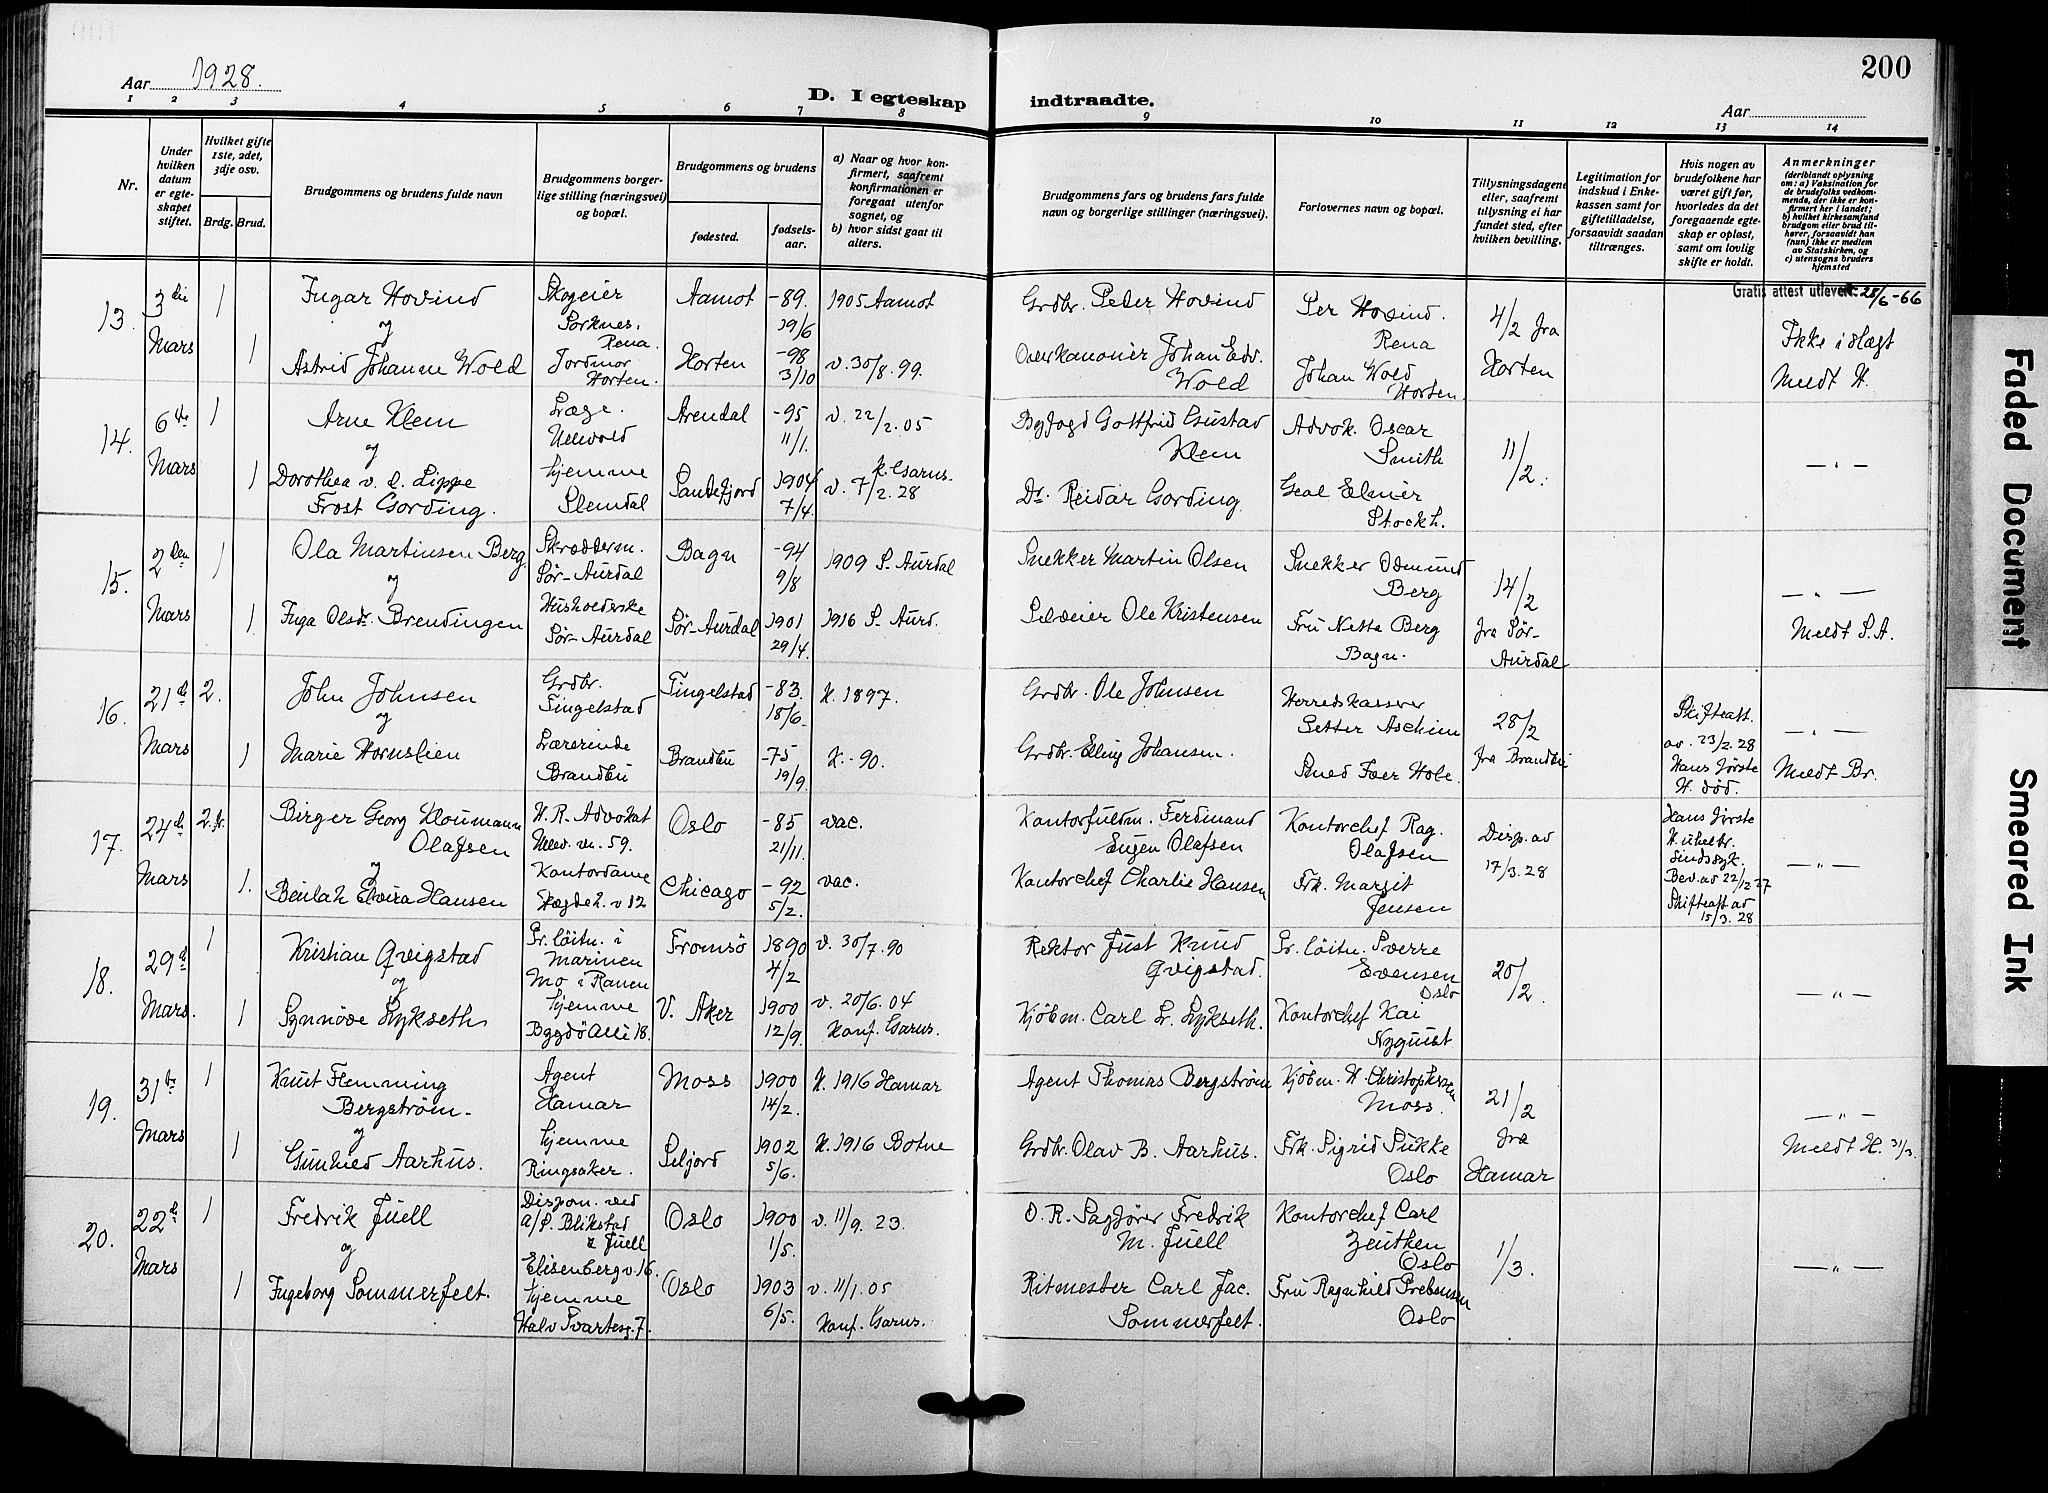 200
Aar 1928.
D. I egteskap indtraadte.
Aar
1 2 3 4 5 6 7 8 9 10 11 12 13 14
Nr.
Under hvilken datum er egteskapet stiftet.
Hvilket gifte 1ste, 2det, 3dje osv.
Brdg. Brud.
Brudgommens og brudens fulde navn
Brudgommens borgerlige stilling (næringsvei) og bopæl.
Brudgommens og brudens
fødested.
fødselsaar.
a) Naar og hvor konfirmert, saafremt konfirmationen er foregaat utenfor sognet, og
b) hvor sidst gaat til alters.
Brudgommens fars og brudens fars fulde navn og borgerlige stillinger (næringsvei).
Forlovernes navn og bopæl.
Tillysningsdagene eller, saafremt tillysning ei har fundet sted, efter hvilken bevilling.
Legitimation for indskud i Enkekassen samt for giftetilladelse, forsaavidt saadan tiltrænges.
Hvis nogen av brudefolkene har været gift før, hvorledes da det foregaaende egteskap er opløst, samt om lovlig skifte er holdt.
Anmerkninger (deriblandt oplysning om: a) Vaksination for de brudefolks vedkommende, der ikke er konfirmert her i landet; b) hvilket kirkesamfund brudgom eller brud tilhører, forsaavidt han (hun) ikke er medlem av Statskirken, og c) utensogns bruders hjemsted
Gratis attest utlevert 28/6-66
13. 3die Mars 1 1
Ingar Hovind
og
Astrid Johanne Wold
Skogeier
Sorknes.
Rena.
Jordmor
Horten.
Aamot -89. 19/6 1905 Aamot
Horten -98 3/10 v. 30/8. 99.
Grdbr. Peder Hovind
Overkanonier Johan Edv. Wold
Per Hovind. Rena
Johan Wold Horten
4/2 fra Horten
Ikke ilagt
Meldt H.
14. 6te Mars 1 1
Arne Klem
og
Dorothea v. d. Lippe
Frost Gording.
Læge.
Ullevold
hjemme
Slemdal
Arendal -95 11/1. v. 22/2. 05
Sandefjord 1904 7/4. v. 7/2. 28 k. Garns.
Byfogd Gottfrid Gustad Klem
Dr. Reidar Gording.
Advok. Oscar Smith
Elmér Stockh.
11/2.
— „ —
15. 2den Mars 1 1.
Ola Martinsen Berg
og
Inga Olsdr. Brendingen
Skrædderm.
Sør-Aurdal
Husholderske
Sør-Aurdal
Bagn -94 9/8 1909 S. Aurdal
Sør-Aurdal 1901 29/4. 1916 S. Aurd.
Snekker Martin Olsen
Selveier Ole Kristensen
Snekker Odmund Berg
Fru Netta Berg Bagn.
14/2 fra Sør-Aurdal
— „ —
Meldt S. A.
16. 21de Mars 2. 1
John Johnsen
og
Marie Hornslien
Grdbr.
Tingelstad
Lærerinde
Brandbu
Tingelstad -83. 18/6. K. 1897.
Brandbu -75 19/9. K. -90.
Grdbr. Ole Johnsen
Grdbr. Elling Johansen.
Herredskasserer Petter Aschim
Smed Iver Hole.
28/2 fra Brandbu
Skifteatt. av. 23/2. 28
Hans første H. død.
— „ —
Meldt Br.
17. 24de Mars 2. 1.
Birger Georg Kloumann
Olafsen
og
Beulah Elvira Hansen
H. R. Advokat
Ullev. vn. 59.
Kontordame
Oslo -85 21/11. vac.
Chicago -92 5/2. vac.
Kontorfuldm. Ferdinand Eugen Olafsen
Kontorchef Charlie Hansen
Kontorchef Rag. Olafsen
Frk. Margit Jensen
Disp. av 17/3. 28
Hans første H. uhelbr. sindssyk.
Bev. av 22/12 27
Skifteatt av 15/3. 28
— „ —
18. 29de Mars. 1 1
Kristian Qvigstad
og
Synnøve Lykseth
Pr. löitn. i
Marinen
Mo i Ranen
hjemme
Bygdö Alle 18.
Tromsö 1890 4/2 v. 30/7. 90
V. Aker 1900 12/9. v. 20/6. 04 Konf. Garns.
Rektor Just Knud Qvigstad.
Kjøbm. Carl Fr. Lykseth.
Pr. löitn. Sverre Evensen Oslo
Kontorchef Kai Nyquist
20/2.
— „ —
19. 31te Mars 1 1
Knut Flemming
Bergström.
og
Gunhild Aarhus.
Agent
Hamar
hjemme
Ringsaker.
Moss 1900 14/2. K. 1916 Hamar
Seljord 1902 5/6. K. 1916 Botne
Agent Thomas Bergström
Grdbr. Olav B. Aarhus.
Kjöbm. H. Christophersen Moss.
Frk. Sigrid Sukke Oslo
21/2 fra Hamar
— „ —
Meldt H. 31/3.
20. 22de Mars 1 1
Fredrik Juell
og
Ingeborg Sommerfelt.
Dispon. ved
A/S. Blikstad
& Juell
Elisenberg v. 16.
hjemme
Halv Svartesg. 7.
Oslo 1900 1/5. v. 11/9. 23.
Oslo 1903 6/5. v. 11/1. 05 Konf. Garns.
O. R. Sagförer Fredrik M. Juell
Ritmester Carl Jac. Sommerfelt.
Kontorchef Carl Zeuthen Oslo
Fru Ragnhild Prebensen Oslo
1/3.
— „ —
Faded Document
Smeared Ink